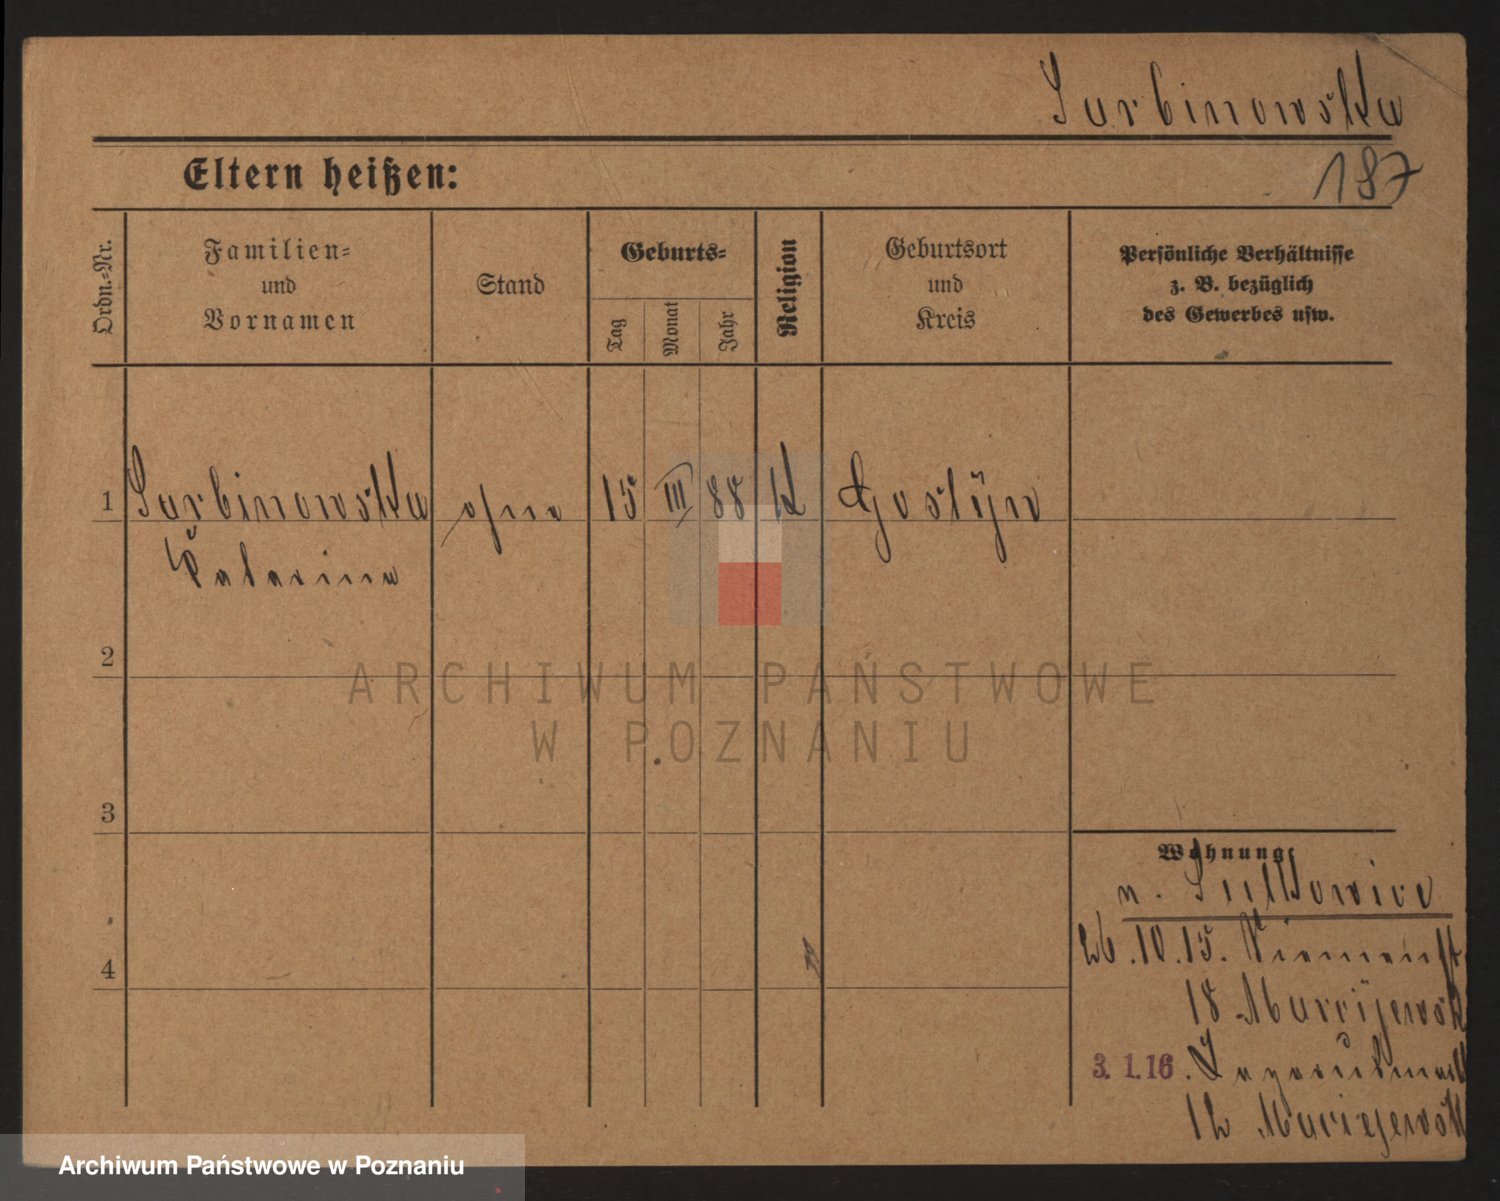 Surbinowska
187
Eltern heißen:
Ordn.=Nr.
Familien=
und
Vornamen
Stand
Geburts=
Tag
Monat
Jahr
Religion
Geburtsort
und
Kreis
Persönliche Verhältnisse
z. B. bezüglich
des Gewerbes usw.
1
Surbinowska
ohne
15 III 88 K
Gostyn
Katarina
2
3
4
Wohnung:
n. Sulkowice
26.10.15.
18
3. 1. 16.
12
ARCHIWUM PAŃSTWOWE
W POZNANIU
Archiwum Państwowe w Poznaniu